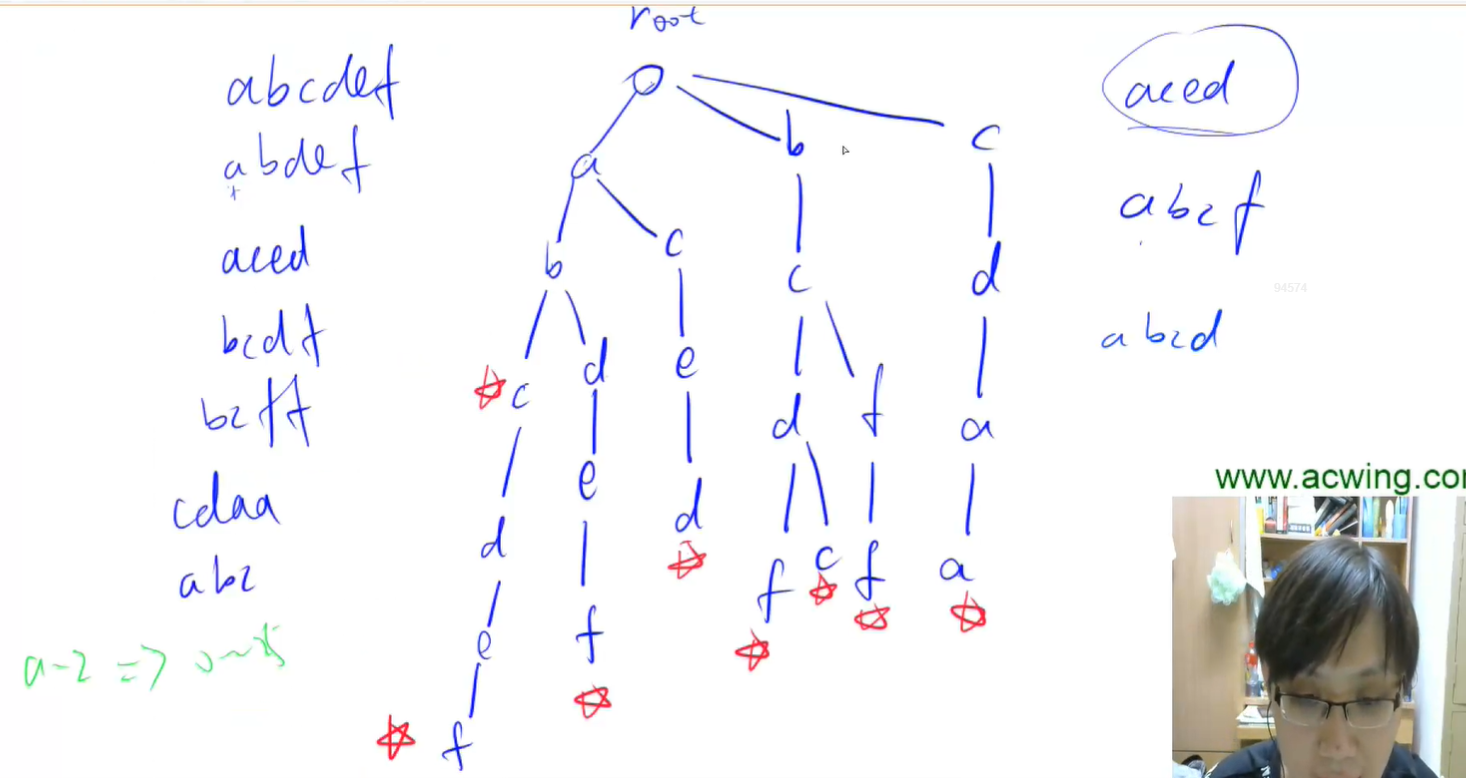 root
abcdef
abdef
aced
bcdf
bcff
cdaa
abc
a-z => 0~25
a b c
b c d
c d c e d a
d e e d f a
e f d f c f a
f
aced
abcf
abcd
94574
www.acwing.co